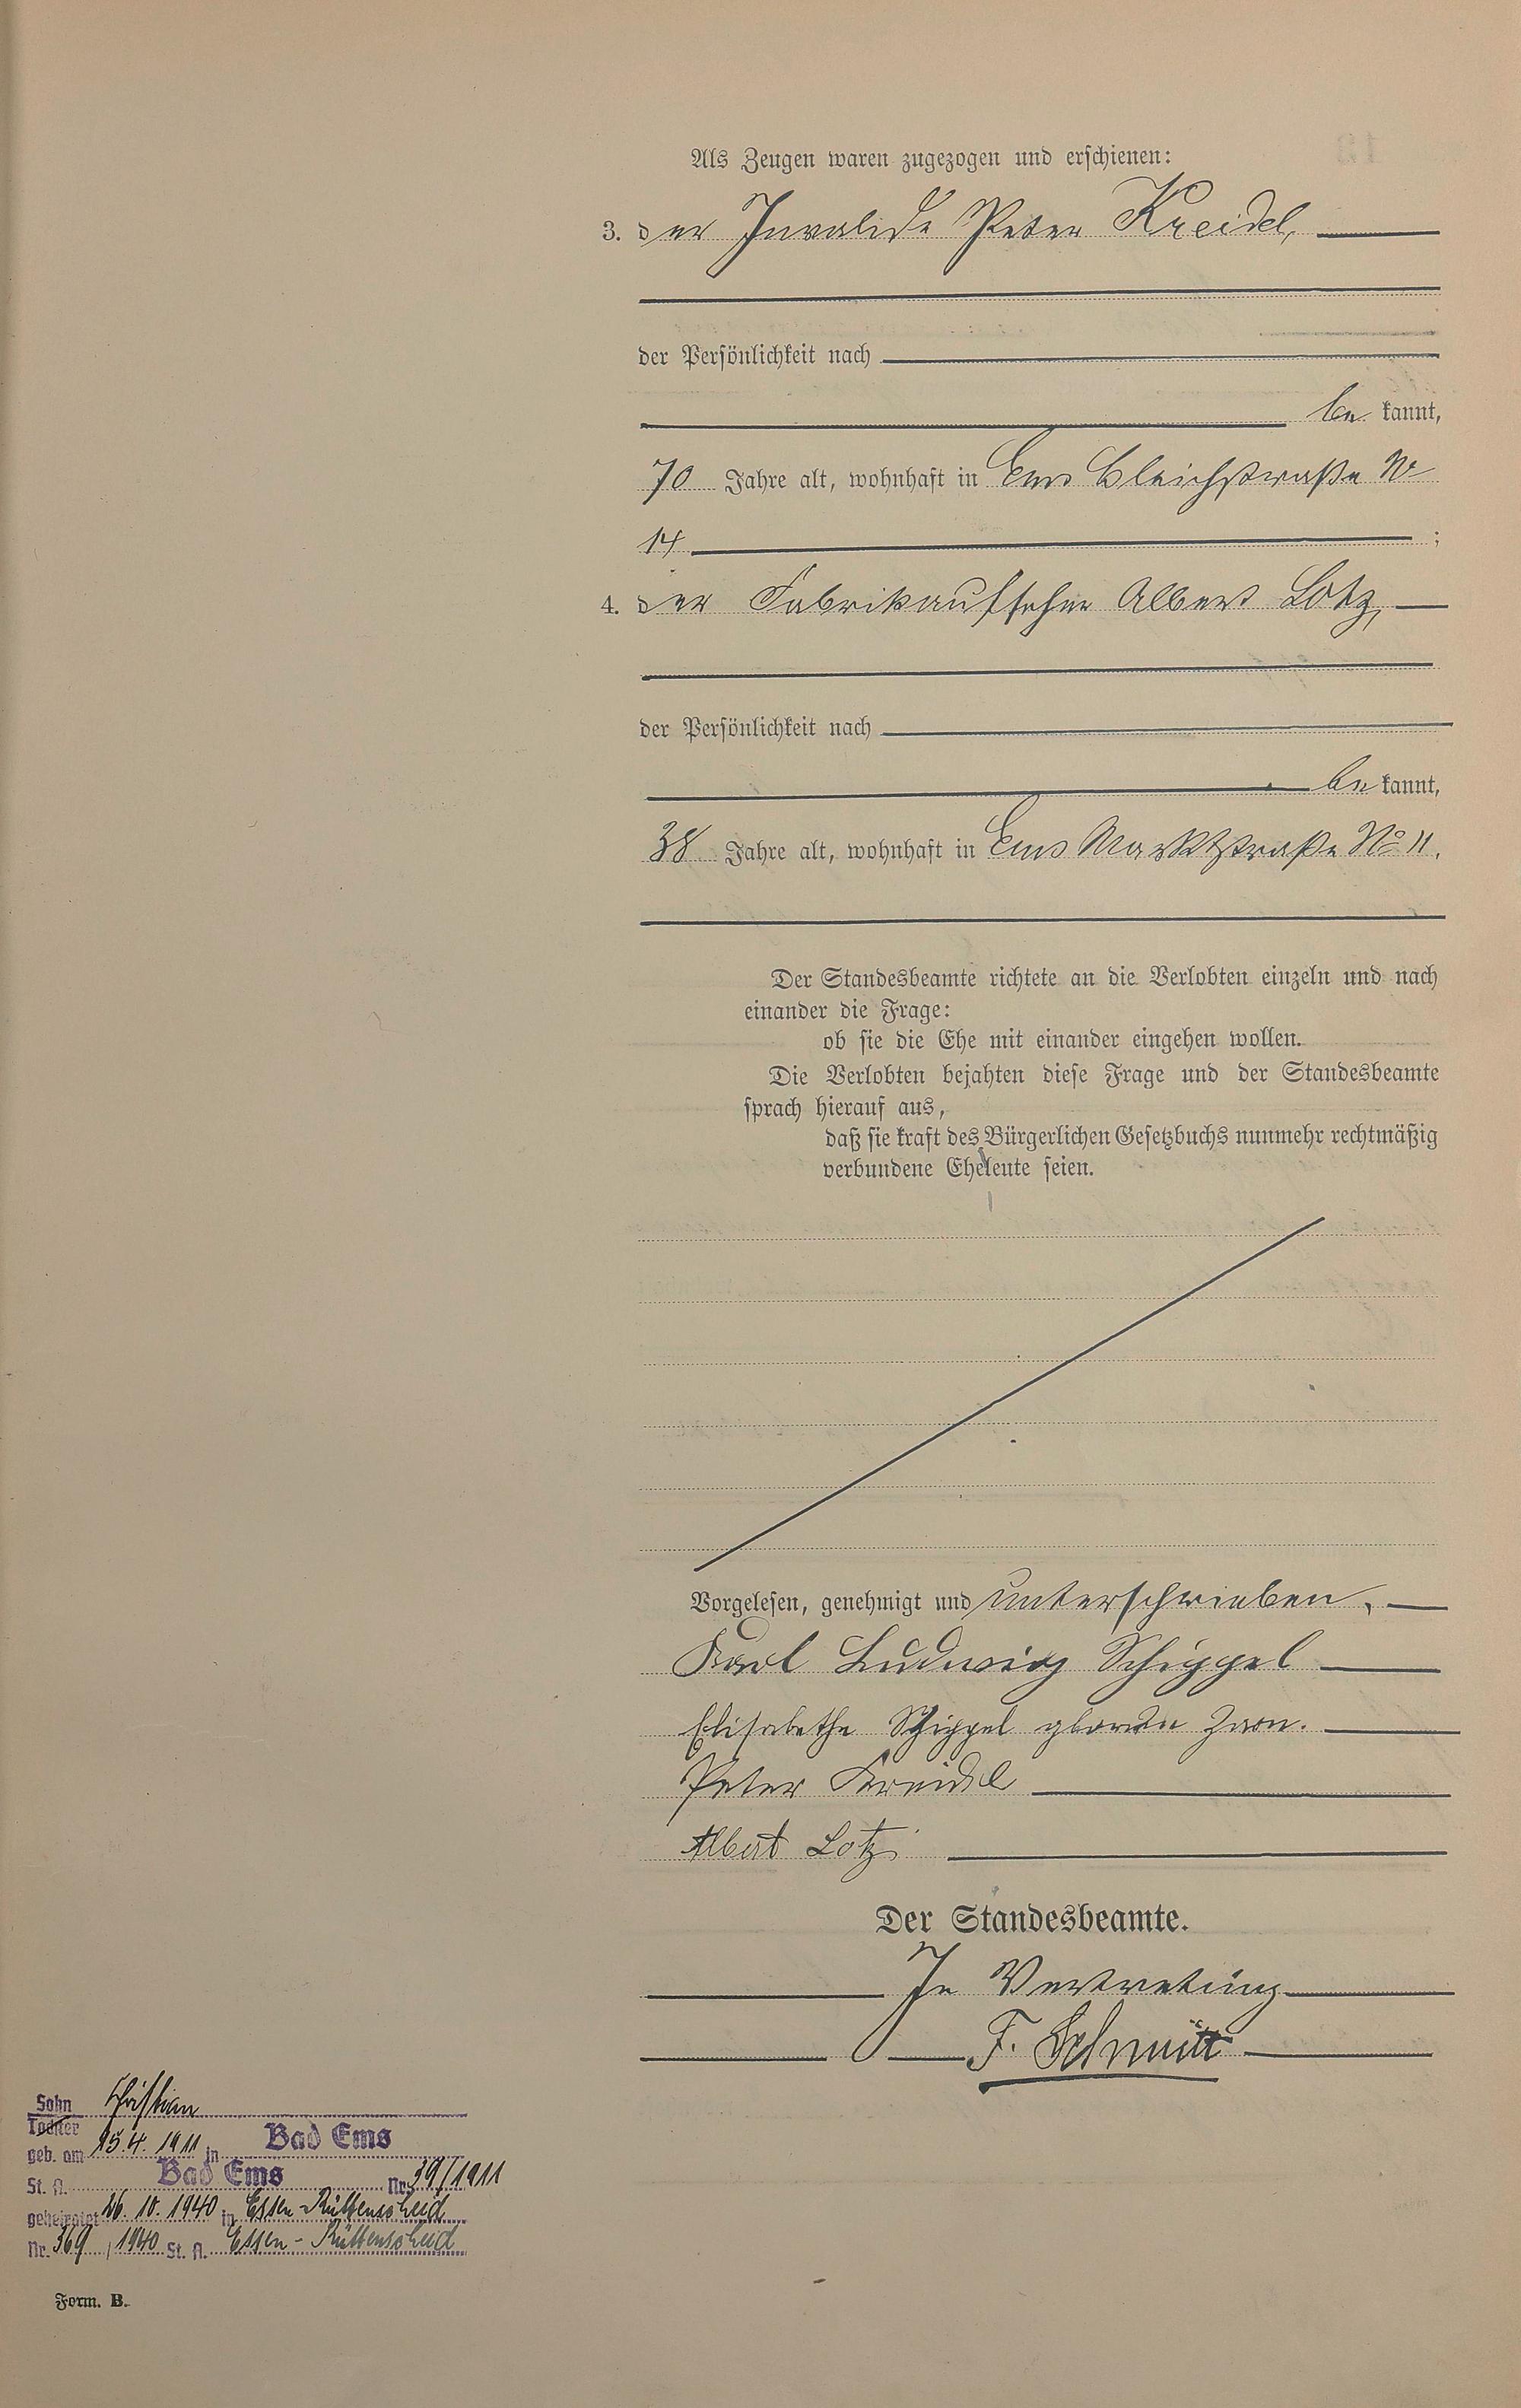 Als Zeugen waren zugezogen und erschienen:
3. der Invalide Peter Kreidel,
der Persönlichkeit nach
be kannt,
70 Jahre alt, wohnhaft in Ems Bleichstraße No
14 ;
4. der Fabrikaufseher Albert Lotz,
der Persönlichkeit nach
be kannt,
38 Jahre alt, wohnhaft in Ems Marktstraße No 11.
Der Standesbeamte richtete an die Verlobten einzeln und nach
einander die Frage:
ob sie die Ehe mit einander eingehen wollen.
Die Verlobten bejahten diese Frage und der Standesbeamte
sprach hierauf aus,
daß sie kraft des Bürgerlichen Gesetzbuchs nunmehr rechtmäßig
verbundene Eheleute seien.
Vorgelesen, genehmigt und unterschrieben.
Karl Ludwig Schippel
Elisabethe Schippel geborene
Peter Kreidel
Albert Lotz
Der Standesbeamte.
In Vertretung
F. Schmitt
Sohn Christian
Tochter
geb. am 15.4.1911 in Bad Ems
St. A. Bad Ems Nr. 39/1911
geheiratet 26.10.1940 in Essen-Rüttenscheid
Nr. 369 / 1940 St. A. Essen-Rüttenscheid
Form. B.